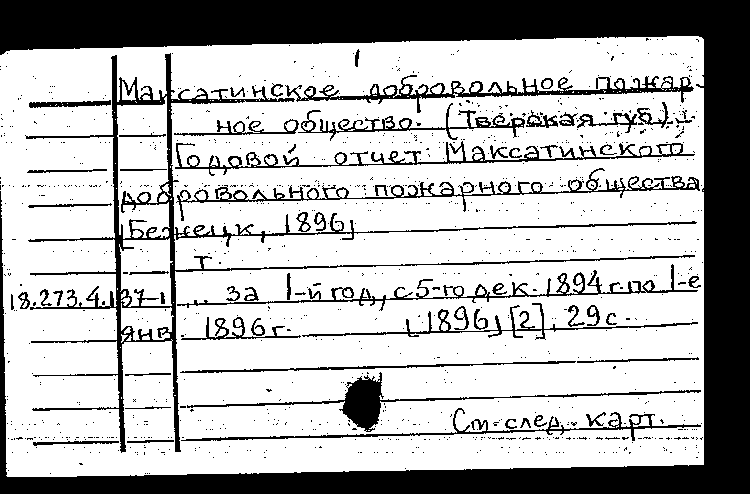 1
Максатинское добровольное пожар-
ное общество. (Тверская губ).
Годовой отчет Максатинского
добровольного пожарного общества
[Бежецк, 1896]
т.
18.273.4.137-1 ... за 1-й год, с 5-го дек. 1894 г. по 1-е
янв. 1896 г. [1896] [2], 29 с.
См. след. карт.